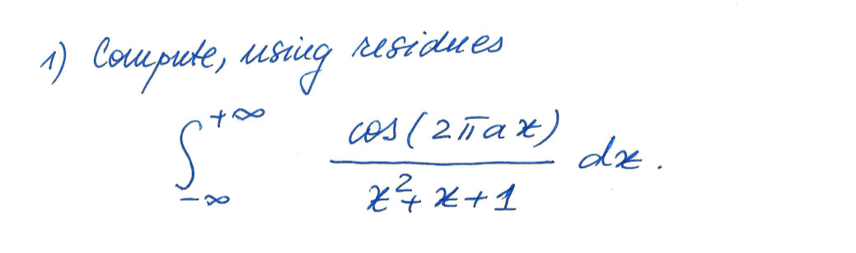 1) Compute, using residues
∫_{-∞}^{+∞} \frac{cos(2πax)}{x^2+x+1} dx.